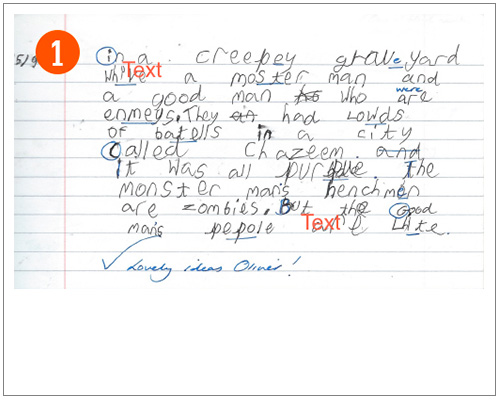 1
in a creepey graveyard
Text
a moster man and
were
a good man who are
enmeys. They had lowds
of batolls in a city
Called Chazeem. and
It was all the
monster man's henchmen
are zombies. But the Good
Text
man's pepole
✓ Lovely ideas Oliver!